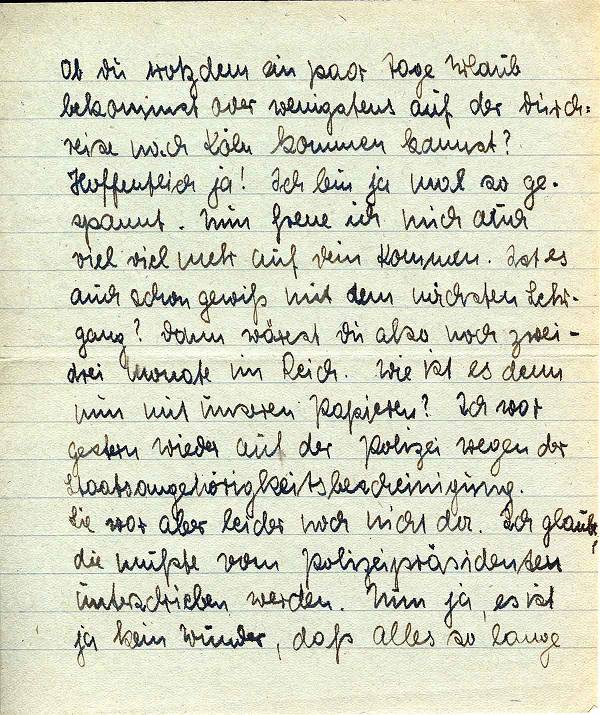 Ob du trotzdem ein paar Tage Urlaub
bekommst oder wenigstens auf der Durch=
reise nach Köln kommen kannst?
Hoffentlich ja! Ich bin ja mal so ge-
spannt. Nun freue ich mich auch
viel viel mehr auf dein Kommen. Ist es
auch schon gewiß mit dem nächsten Lehr-
gang? Dann wärest du also noch zwei-
drei Monate im Reich. Wie ist es denn
nun mit unseren Papieren? Ich war
gestern wieder auf der Polizei wegen der
Staatsangehörigkeitsbescheinigung.
Sie war aber leider noch nicht da. Ich glaube,
die mußte vom Polizeipräsidenten
unterschrieben werden. Nun ja, es ist
ja kein Wunder, daß alles so lange